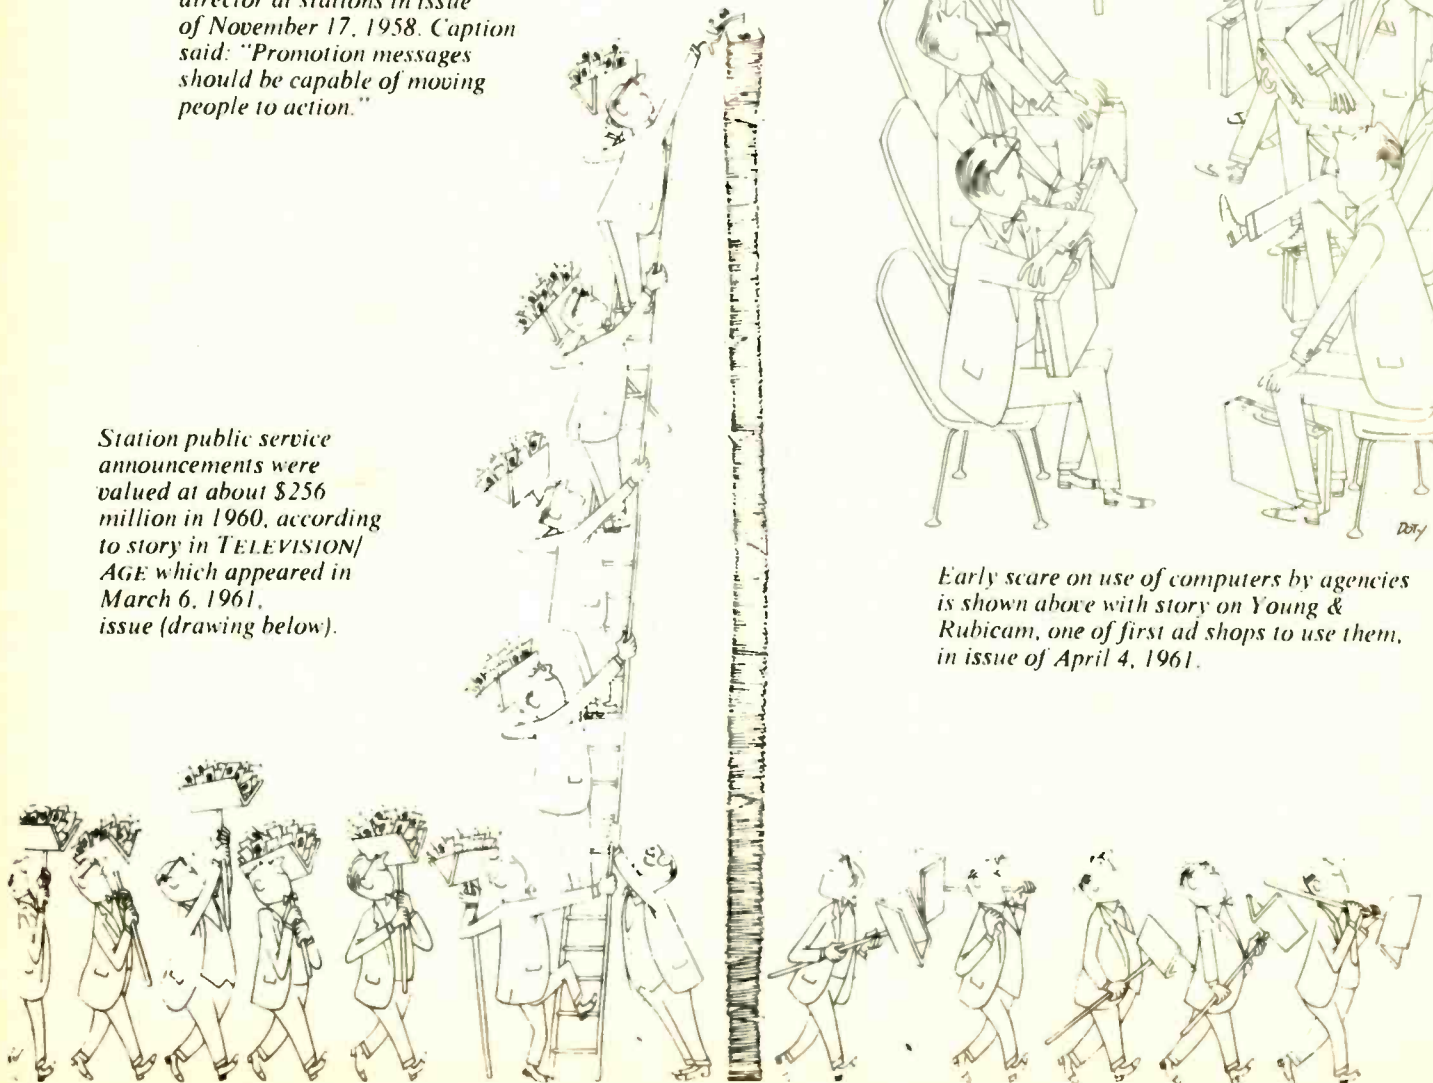 director at stations in issue
of November 17, 1958. Caption
said: "Promotion messages
should be capable of moving
people to action."
Station public service
announcements were
valued at about $256
million in 1960, according
to story in TELEVISION/
AGE which appeared in
March 6, 1961,
issue (drawing below).
DOTY
Early scare on use of computers by agencies
is shown above with story on Young &
Rubicam, one of first ad shops to use them,
in issue of April 4, 1961.